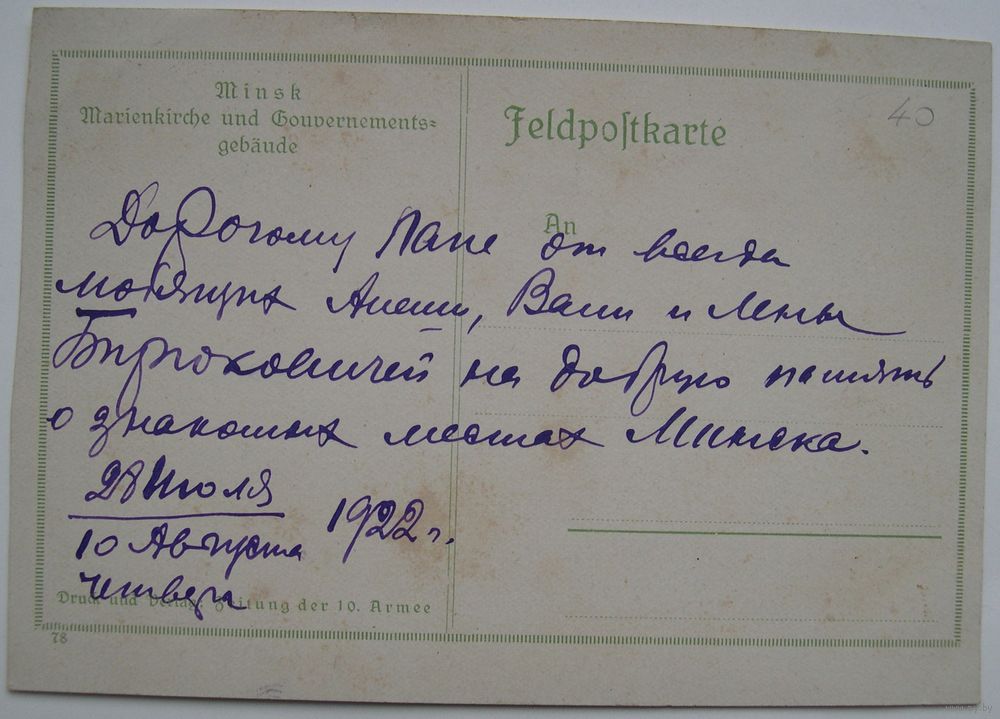 Minsk
Marienkirche und Gouvernements=
gebäude
Feldpostkarte
40
An
Дорогому Папе от всегда
любящих Алеши, Вали и Лены
Бирюковичей на добрую память
о знакомых местах Минска.
28 Июля
10 Августа 1922 г.
четверг
Druck und Verlag: Zeitung der 10. Armee
78